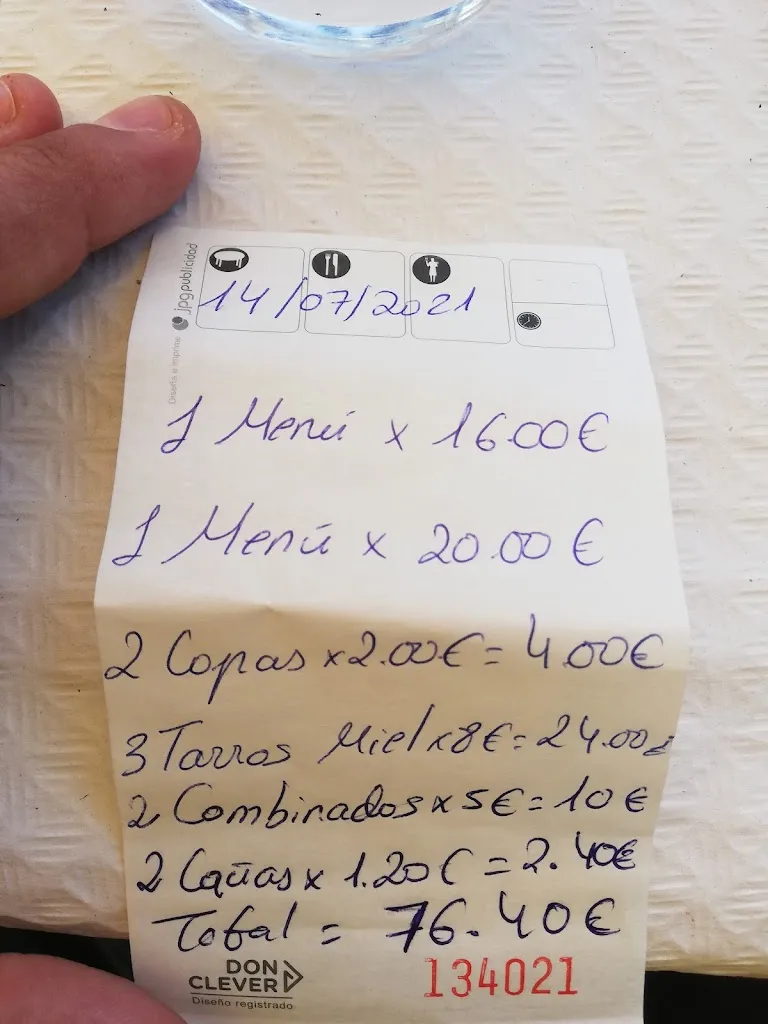 jpgpublicidad
Diseña e imprime
14/07/2021
1 Menú x 16.00€
1 Menú x 20.00€
2 Copas x 2.00€ = 4.00€
3 Tarros Miel x 8€ = 24.00€
2 Combinados x 5€ = 10€
2 Cañas x 1.20€ = 2.40€
Total = 76.40€
DON
CLEVER
Diseño registrado
134021